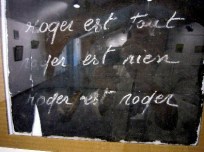 roger est tout
roger est rien
roger est roger